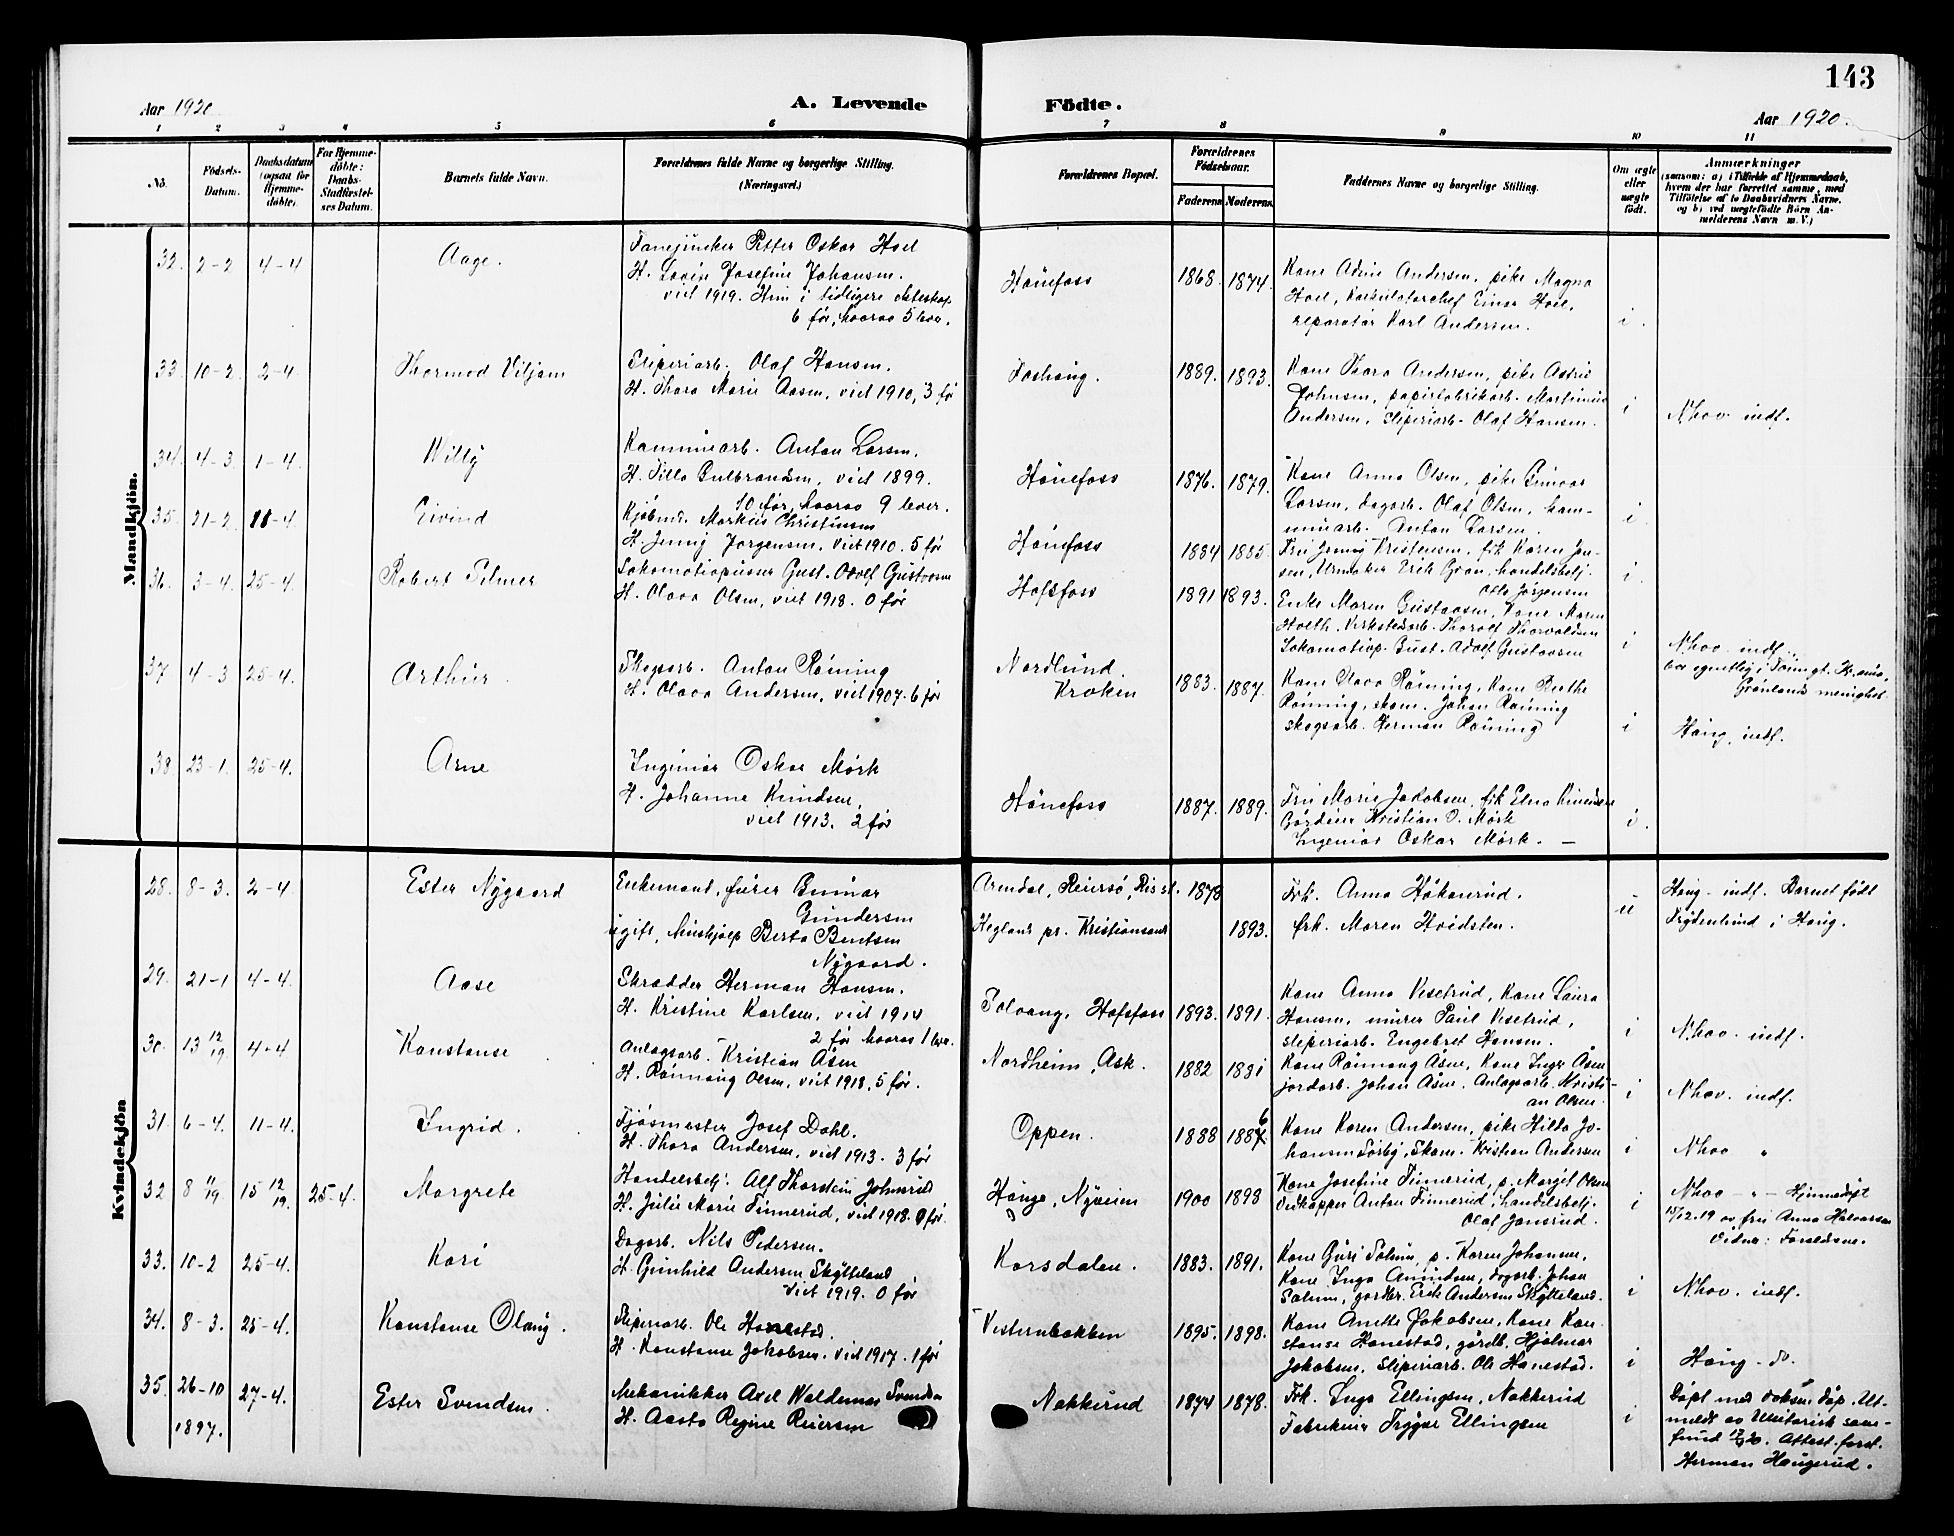 143
Aar 1920.
A. Levende Födte.
Aar 1920.
1 2 3 4 5 6 7 8 9 10 11
No. Födsels-Datum. Daabsdatum (ogsaa for Hjemme-döbte). For Hjemme-döbte: Daabs-Stadfæstel-ses Datum. Barnets fulde Navn. Forældrenes fulde Navne og borgerlige Stilling. (Næringsvei.) Forældrenes Bopæl. Forældrenes Födselsaar. Faderens Moderens Faddernes Navne og borgerlige Stilling. Om ægte eller uægte födt. Anmærkninger
(saasom: a) i Tilfælde af Hjemmedaab,
hvem der har forrettet samme, med
Tilföielse af to Daabsvidners Navne,
og b) ved uægtefödte Börn An-
melderens Navn m. V.)
Mandkjön.
32. 2-2 4-4 Aage.
Petter Oskar Hoel
H. Josefine Johansen.
vict 1919. Hun i tidligere ekteskap
6 før, hvorav 5 lever.
Hönefoss 1868. 1874.
Kone Andersen, pike Magna
Hoel, Einar Hoel,
reparatör Karl Andersen.
i.
33. 10-2. 2-4. Thormod Viljam
Sliperiarb. Olaf Hansen.
H. Thora Marie Aasen, viet 1910, 3 før
1889. 1893.
Kone Thora Andersen, pike Astrid
Johnsen, papirfabrikarb. Martinius
Andersen, Sliperiarb. Olaf Hansen.
i
N'hov. indf.
34. 4-3. 1-4. Willy
Anton Larsen.
H. Gulbrandsen, viet 1899.
10 før, hvorav 9 lever.
Hönefoss 1876. 1879.
Kone Anna Olsen, pike
Larsen, dagarb. Olaf Olsen, kom-
muüarb. Anton Larsen.
i
35. 21-2. 11-4. Eivind
Kjøbmd. Markus Christensen
H. Jenny Jorgensen, viet 1910. 5 før
Hönefoss 1884 1885.
Fru Jenny Kristensen, frk Karen Jen-
sen, Urmaker Erik Gran, handelsbetj.
Otto Jörgensen
i.
36. 3-4. 25-4. Robert
Gust. Adolf Gustavsen
H. Olava Olsen, viet 1918. 0 før
Hofsfoss 1891 1893.
Enke Maren Gustavsen, Kone Maren
Holth, Verkstedarb. Thorolf Thorvaldsen
Lokomotivp. Gust. Adolf Gustavsen
i
N'hov. indf.
bor egentlig i
Grönlands menighet.
37 4-3 25-4. Arthur.
Skogsarb. Anton Röning
H. Olava Andersen, viet 1907. 6 før
Nordlund.
Kroken
1883. 1887.
Kone Olava Röning, Kone Ruthe
Röning, skom. Johan Röning
skogsarb. Herman Röning
i
Haug, indf.
38 23-1. 25-4. Arne
Ingeniör Oskar Mörk
H. Johanne Knudsen.
viet 1913. 2 før
Hönefoss 1887. 1889.
Fru Marie Jakobsen, frk Elna Knudsen
Gårdeier Kristian O. Mörk
Ingeniör Oskar Mörk. —
i.
Kvindekjön
28. 8-3. 2-4 Ester Nygaard
Enkemand, fyrer Gunnar
Gundersen
ugift, Berta Bentsen
Nygaard.
Arendal, 1878
pr. Kristiansand 1893.
Frk. Anna Håkonrud.
frk. Maren Hvidsten.
u
Haug - indf. Barnet født
Frydenlund i Haug.
29. 21-1 4-4. Aase
Skrædder Herman Hansen.
H. Kristine Karlsen, viet 1914
2 før hvorav 1 lever.
Solvang, Hofsfoss 1893. 1891.
Kone Anna Vesetrud, Kone Laura
Hansen, murer Paul Vesetrud,
sliperiarb. Engebret Hansen.
i
N.hov. indf.
30. 13 12/19. 4-4 Konstanse
Anlagsarb. Kristian Åsen
H. Rönnaug Olsen, viet 1918, 5 før.
Nordheim, Ask. 1882 1881
Kone Rönnaug Åsen, Kone Inger Åsen
jordarb. Johan Åsen. Anlagsarb. Kristi-
an Olsen.
i
N.hov. indf.
31. 6-4. 11-4. Ingrid.
Fjösmester Josef Dahl.
H. Thora Andersen, viet 1913. 3 før
Oppen. 1888 1887 6
Kone Karen Andersen, pike Hilda Jo-
hansen Sörby, Skom. Kristian Andersen
i
N'hov "
32 8 11/19. 15 12/19. 25-4. Margrete
Handelsbetj. Alf Thorstein Johnsrud
H. Julie Marie Finnerud, viet 1918. 0 før.
Hönge, Nyheim 1900 1898
Kone Josefine Finnerud, p. Margit Olsen
Vedkapper Anton Finnerud, handelsbetj.
Olaf Jonsrud.
i
N'hov - " - Hjemmedöpt
15/12.19 av fru Anna Halvorsen
Vidner: Foreldrene.
33. 10-2 25-4. Kari
Dagarb. Nils Pedersen.
H. Gunhild Andersen Skytteland
Viet 1919. 0 før
Korsdalen. 1883. 1891.
Kone Guri Solum, p. Karen Johansen,
Kone Inga Amundsen, dagarb. Johan
Solum, gårdbr. Erik Andersen Skytteland.
i
N'hov. indf.
34. 8-3. 25-4. Konstanse Olaug.
Sliperiarb. Ole Honestad.
H. Konstanse Jakobsen. viet 1917. 1 før
Vesternbakken 1895. 1898.
Kone Anette Jakobsen, Kone Kon-
stanse Honestad, gårdb. Hjalmar
Jakobsen, Sliperiarb. Ole Honestad.
i
Haug - do.
35. 26-10 1897. 27-4. Ester Svendsen.
Mekanikker Axel Waldemar Svendsen
H. Aasta Regine Reiersen
Nakkerud 1874 1878.
Frk. Inga Ellingsen, Nakkerud
Fabrikeier Trygve Ellingsen
i
Døpt med voksen dåp. Ut-
meldt av Unitarisk sam-
fund 20. Attest. forst.
Herman Haugerud.